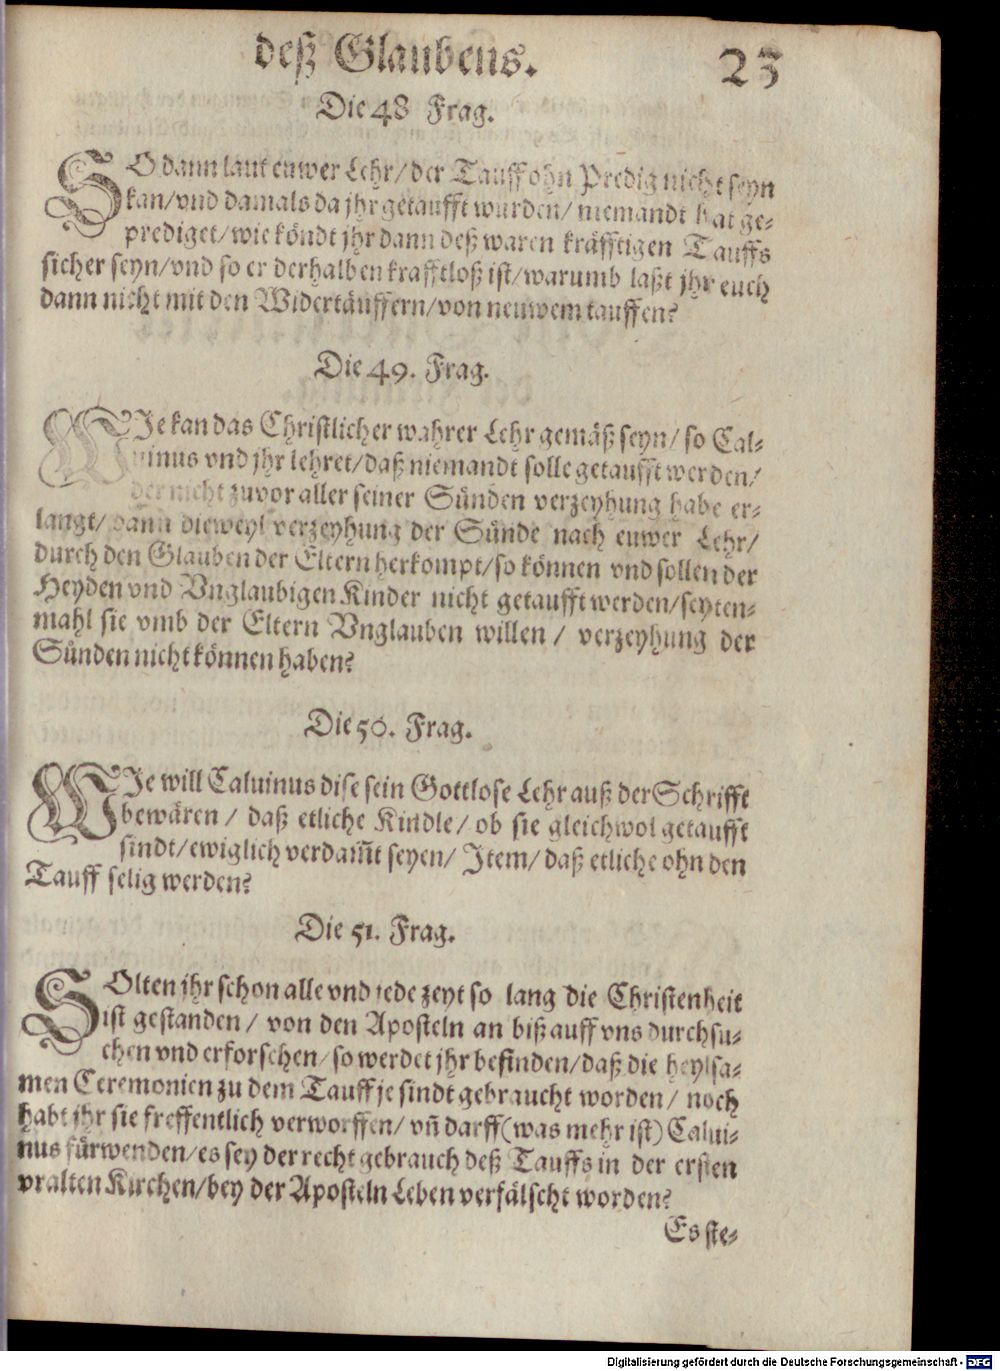 deß Glaubens. 23
Die 48 Frag.
SO dann laut euwer Lehr/ der Tauff ohn Predig nicht seyn
kan/ vnd damals da jhr getaufft wurden/ niemandt hat ge-
prediget/ wie köndt jhr dann deß waren kräfftigen Tauffs
sicher seyn/ vnd so er derhalben krafftloß ist/ warumb laßt jhr euch
dann nicht mit den Widertäuffern/ von neuwem tauffen?
Die 49. Frag.
WIe kan das Christlicher wahrer Lehr gemäß seyn/ so Cal-
uinus vnd jhr lehret/ daß niemandt solle getaufft werden/
der nicht zuvor aller seiner Sünden verzeyhung habe er-
langt/ dann dieweyl verzeyhung der Sünde nach euwer Lehr/
durch den Glauben der Eltern herkompt/ so können vnd sollen der
Heyden vnd Vnglaubigen Kinder nicht getaufft werden/ seyten-
mahl sie vmb der Eltern Vnglauben willen/ verzeyhung der
Sünden nicht können haben?
Die 50. Frag.
WIe will Caluinus dise sein Gottlose Lehr auß der Schrifft
bewären/ daß etliche Kindle/ ob sie gleichwol getaufft
sindt/ ewiglich verdam̃t seyen/ Item/ daß etliche ohn den
Tauff selig werden?
Die 51. Frag.
SOlten jhr schon alle vnd jede zeyt so lang die Christenheit
ist gestanden/ von den Aposteln an biß auff vns durchsu-
chen vnd erforschen/ so werdet jhr befinden/ daß die heylsa-
men Ceremonien zu dem Tauff je sindt gebraucht worden/ noch
habt jhr sie freffentlich verworffen/ vñ darff (was mehr ist) Calui-
nus fürwenden/ es sey der recht gebrauch deß Tauffs in der ersten
vralten Kirchen/ bey der Aposteln Leben verfälscht worden?
Es ste-
Digitalisierung gefördert durch die Deutsche Forschungsgemeinschaft - DFG